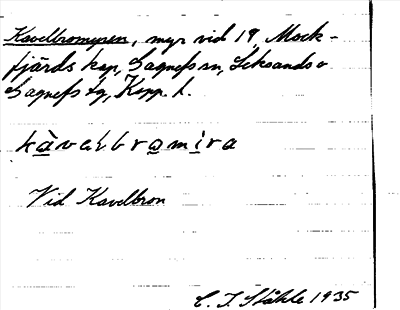 Kavelbromyren, myr vid 19, Mock-
fjärds kap, Gagnefs sn, Leksands o
Gagnefs tg, Kopp. l.
kàvalbromìra
Vid Kavelbron
C. I. Ståhle 1935